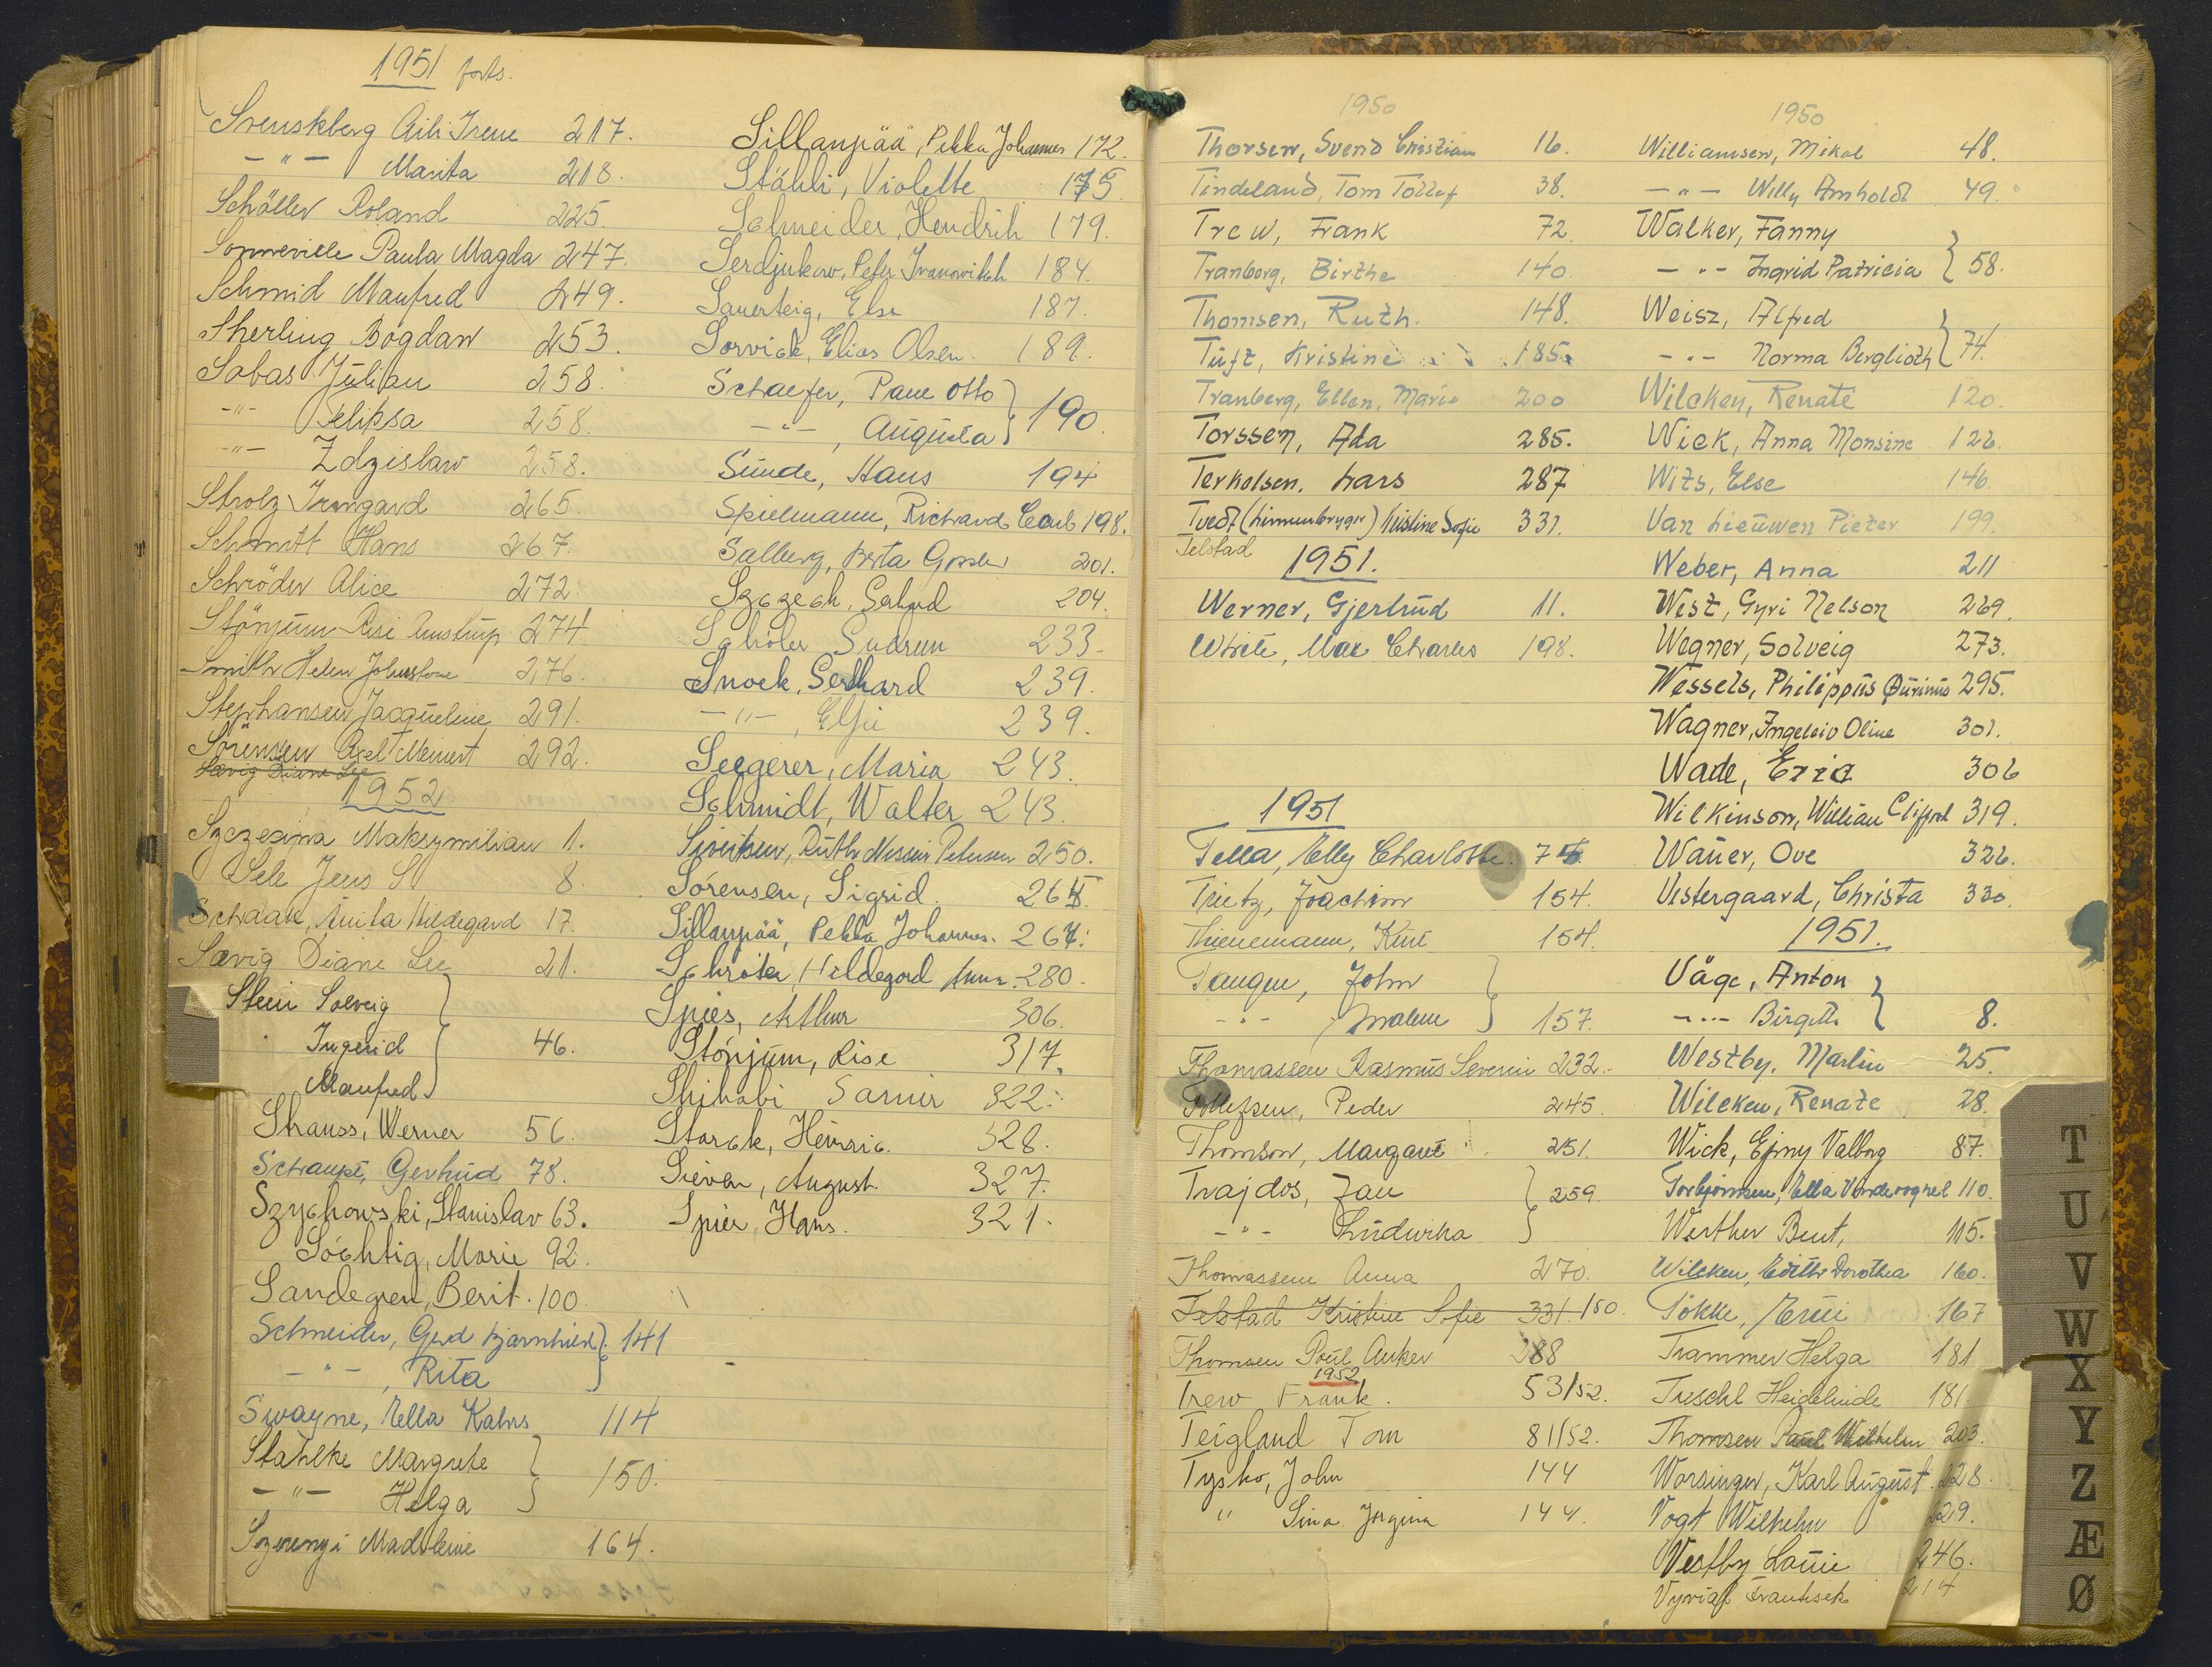 1951 forts.
Svenskberg Aili Irene 217.
-"- Marita 218.
Schöller Roland 225.
Sonneville Paula Magda 247.
Schmid Manfred 249.
Sherling Bogdan 253.
Sabas Julian 258.
-"- Feliksa 258.
-"- Zdzislaw 258.
Stolz Irmgard 265.
Schmitt Hans 267.
Schröder Alice 272.
Stönjum Risi Amstrup 274
Smith Helen Johnstone 276.
Stephansen Jacqueline 291.
Sörensen Axel Meinert 292.
Sævig Diane Lee
1952.
Maksymilian 1.
Sele Jens S 8.
Schaak, Anita Hildegard 17.
Sævig Diane Lee 21.
Stein Solveig
Ingerid 46.
Manfred
Strauss, Werner 56.
Schaupt, Gertrud 78.
Szychowski, Stanislav 63.
Söchtig, Marie 92.
Sandegren, Berit. 100
Schneider, Gerd Bjarnhild 141
-"-, Rita
Swayne, Ella Kahrs 114
Stahlke Margrete 150.
-"- Helga
Szerenyi Madeleine 164.
Sillanpää, Pekka Johannes 172.
Stähli, Violette 175
Schneider, Hendrik 179.
Serdjukow, Peter Ivanovitch 184.
Sauerteig, Else 187.
Sorvick, Elias Olsen. 189.
Schaefer, Paul Otto 190.
-"-, Augusta
Sunde, Hans 194
Spielmann, Richard Carl 198.
Salberg, Berta 201.
Szczech, Gerhard 204.
Gudrun 233.
Snoek, Gerhard 239.
-"-, Elfie 239.
Seegerer, Maria 243.
Schmidt, Walter 243.
Sivertsen, Ruth Nissen Petersen 250.
Sörensen, Sigrid. 264.
Sillanpää, Pekka Johannes. 267.
Schröter, Hildegard Anna. 280.
Spies, Arthur 306.
Stönjum, Rise 317.
Shihabi Samir 322.
Storck, Heinric. 328.
Sievers, August. 327.
Spier, Hans. 321.
1950
Thorsen, Svend Christian 16.
Tindeland, Tom Tollef 38.
Trew, Frank 72.
Tranborg, Birthe 140.
Thomsen, Ruth. 148.
Tuft, Kristine 185.
Tranberg, Ellen, Marie 200
Torssen, Ada 285.
Terkelsen, Lars 287
Tvedt (Linnenbryger) Kristine Sofie 331.
Telstad
1951.
Werner, Gjertrud 11.
White, Max Charles 198.
1951
Tella, Elly Charlotte. 74
Trietz, Joachim 154.
Thienemann, Kurt 154.
Tangen, John
-"-, Malene 157.
Thomassen Rasmus Severin 232.
Tollefsen, Peder 245.
Thomson, Margaret 251.
Trajdos, Jan 259.
-"- Ludwika
Thomassen Anna 270.
Telstad Kristine Sofie 331. 150.
Thomsen Poul Anker 288
1952
Trew Frank. 53/52.
Teigland Tom 81/52.
Tysko, John 144
" Sina Jorgina 144.
1950
Williamsen, Mikal 48.
-"- Willy Arnholdt 49.
Walker, Fanny
-"- Ingrid Patricia 58.
Weisz, Alfred
-"- Norma Berglioth 74.
Wilcken, Renate 120.
Wick, Anna Monsine 122.
Wits, Else 146.
Van Lieuwen Pieter 199.
Weber, Anna 211
West, Gyri Nelson 269.
Wegner, Solveig 273.
Wessels, Philippus Quirinus 295.
Wagner, Ingeleiv Oline 301.
Wade, Eric 306
Wilkinson, William Clifford 319.
Wauer, Ove 322.
Vestergaard, Christa 330.
1951.
Våge, Anton
-"- Birgitte 8.
Westby, Martin 25.
Wilcken, Renate 28.
Wick, Ejmy Valborg 87.
Torbjörnsen, Ella 110.
Werther Bent, 115.
Wilcken, Edith Dorothea 160.
Tökke, 167
Trammer Helga 181
Treschl Heidelinde 181
Thomsen Paul Wilhelm 203.
Worsinger, Karl August. 228.
Vogt Wilhelm 229.
Westby Louie 246.
Vyvial Frantisek 214
T
U
V
W
X
Y
Z
Æ
Ø